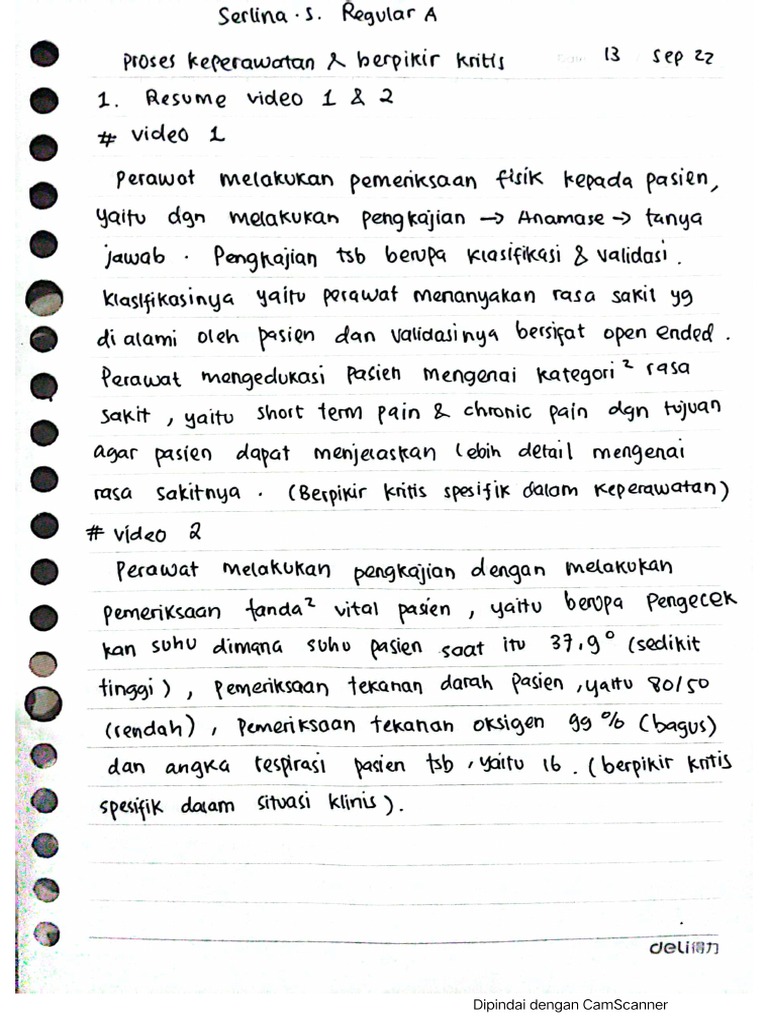 Serlina . S. Regular A
Proses Keperawatan & berpikir kritis 13 Sep 22
1. Resume video 1 & 2
# video 1
Perawat melakukan pemeriksaan fisik kepada pasien,
yaitu dgn melakukan pengkajian → Anamase → tanya
jawab . Pengkajian tsb berupa klasifikasi & validasi .
Klasifikasinya yaitu perawat menanyakan rasa sakit yg
di alami oleh pasien dan validasinya bersifat open ended .
Perawat mengedukasi pasien mengenai kategori² rasa
sakit , yaitu short term pain & chronic pain dgn tujuan
agar pasien dapat menjelaskan lebih detail mengenai
rasa sakitnya . (Berpikir kritis spesifik dalam keperawatan)
# video 2
Perawat melakukan pengkajian dengan melakukan
pemeriksaan tanda² vital pasien , yaitu berupa Pengecek
kan suhu dimana suhu pasien saat itu 37,9° (sedikit
tinggi) , pemeriksaan tekanan darah pasien , yaitu 80/50
(rendah) , Pemeriksaan tekanan oksigen 99 % (bagus)
dan angka respirasi pasien tsb , yaitu 16 . (berpikir kritis
spesifik dalam situasi klinis) .
deli得力
Dipindai dengan CamScanner